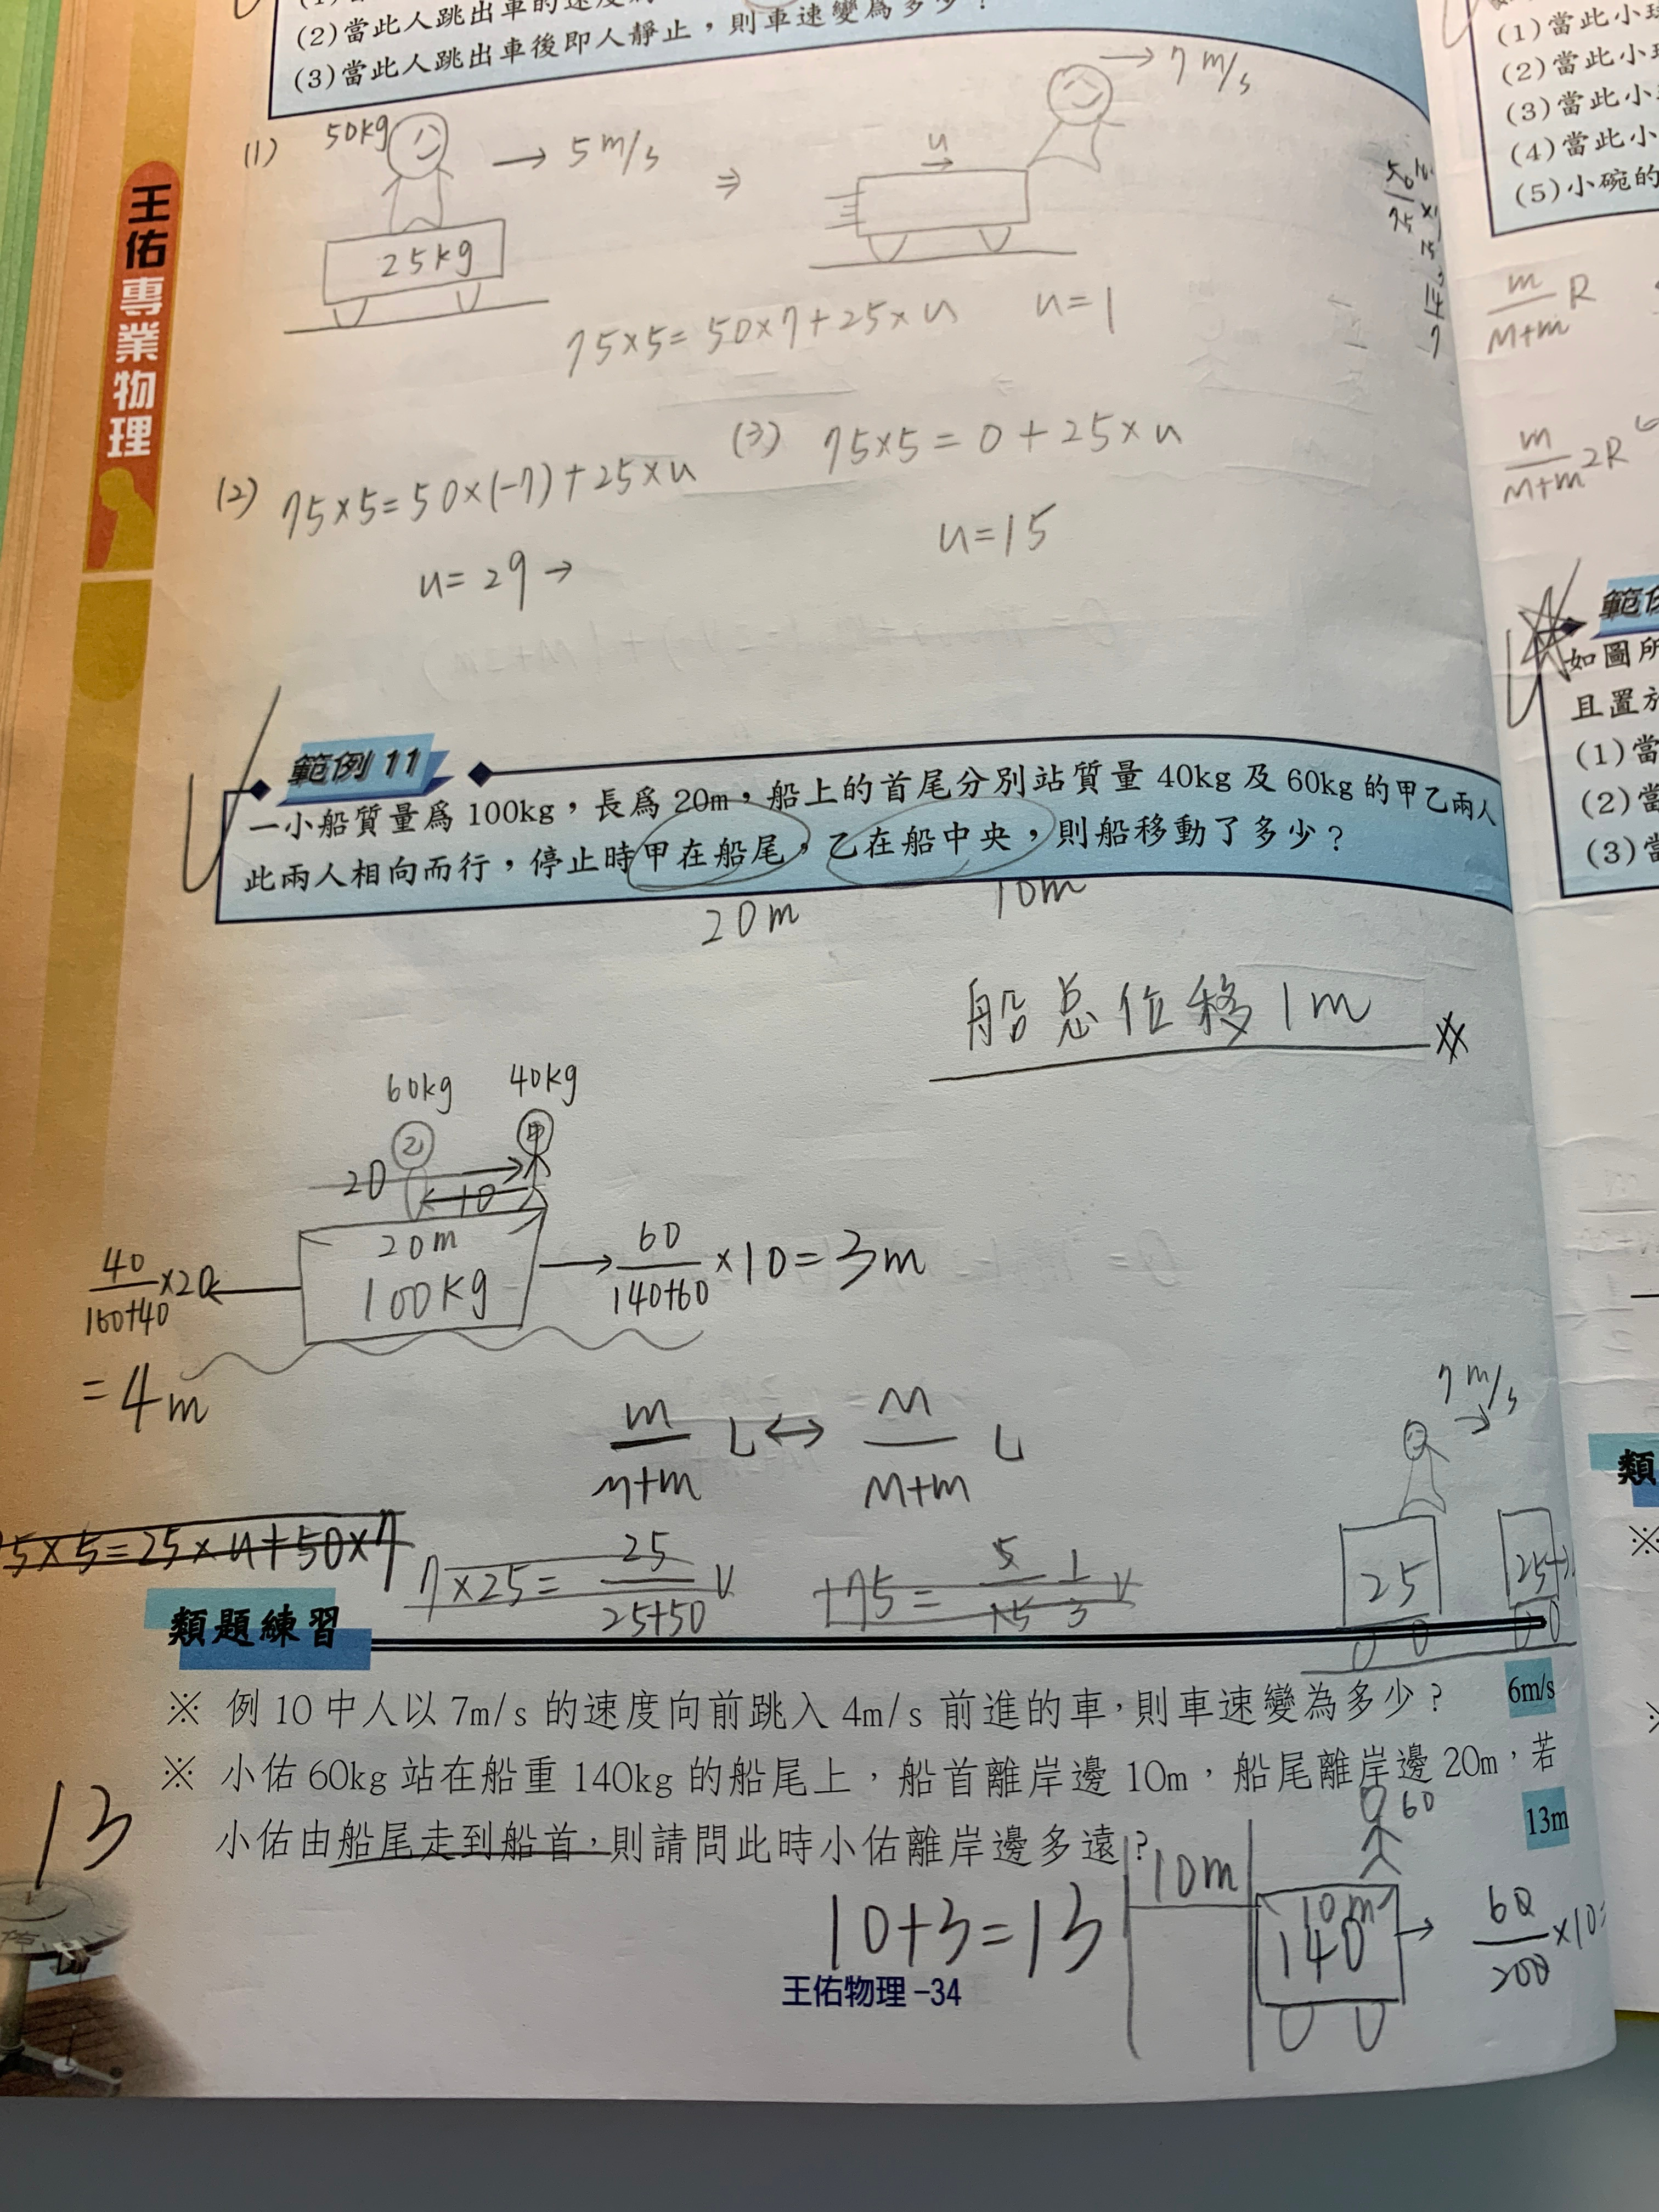 (2)當此人跳出車的速度為
(3)當此人跳出車後即人靜止，則車速變為多少？
王佑專業物理
(1)
50kg
→ 5 m/s
⇒
u
→ 7 m/s
25kg
75×5=50×7+25×u
u=1
(2) 75×5=50×(-7)+25×u
u=29→
(3) 75×5=0+25×u
u=15
範例 11
一小船質量為 100kg，長為 20m，船上的首尾分別站質量 40kg 及 60kg 的甲乙兩人
此兩人相向而行，停止時甲在船尾，乙在船中央，則船移動了多少？
20m
10m
船总位移1m
60kg 40kg
乙 甲
20
10
20m
100kg
40/(160+40)×20
=4m
→ 60/(140+60)×10=3m
m/(M+m) L ↔ M/(M+m) L
75×5=25×u+50×7
7×25= 25/(25+50) V
7 m/s
25
類題練習
※ 例 10 中人以 7m/s 的速度向前跳入 4m/s 前進的車，則車速變為多少？ 6m/s
※ 小佑 60kg 站在船重 140kg 的船尾上，船首離岸邊 10m，船尾離岸邊 20m，若
小佑由船尾走到船首，則請問此時小佑離岸邊多遠？ 13m
13
10+3=13
10m
60
10m
140
→ 60/200 ×10=
王佑物理 -34
(1)當此小球
(2)當此小球
(3)當此小
(4)當此小
(5)小碗的
m/(M+m) R
m/(M+m) 2R
範例
如圖所
且置於
(1)當
(2)當
(3)當
類
※